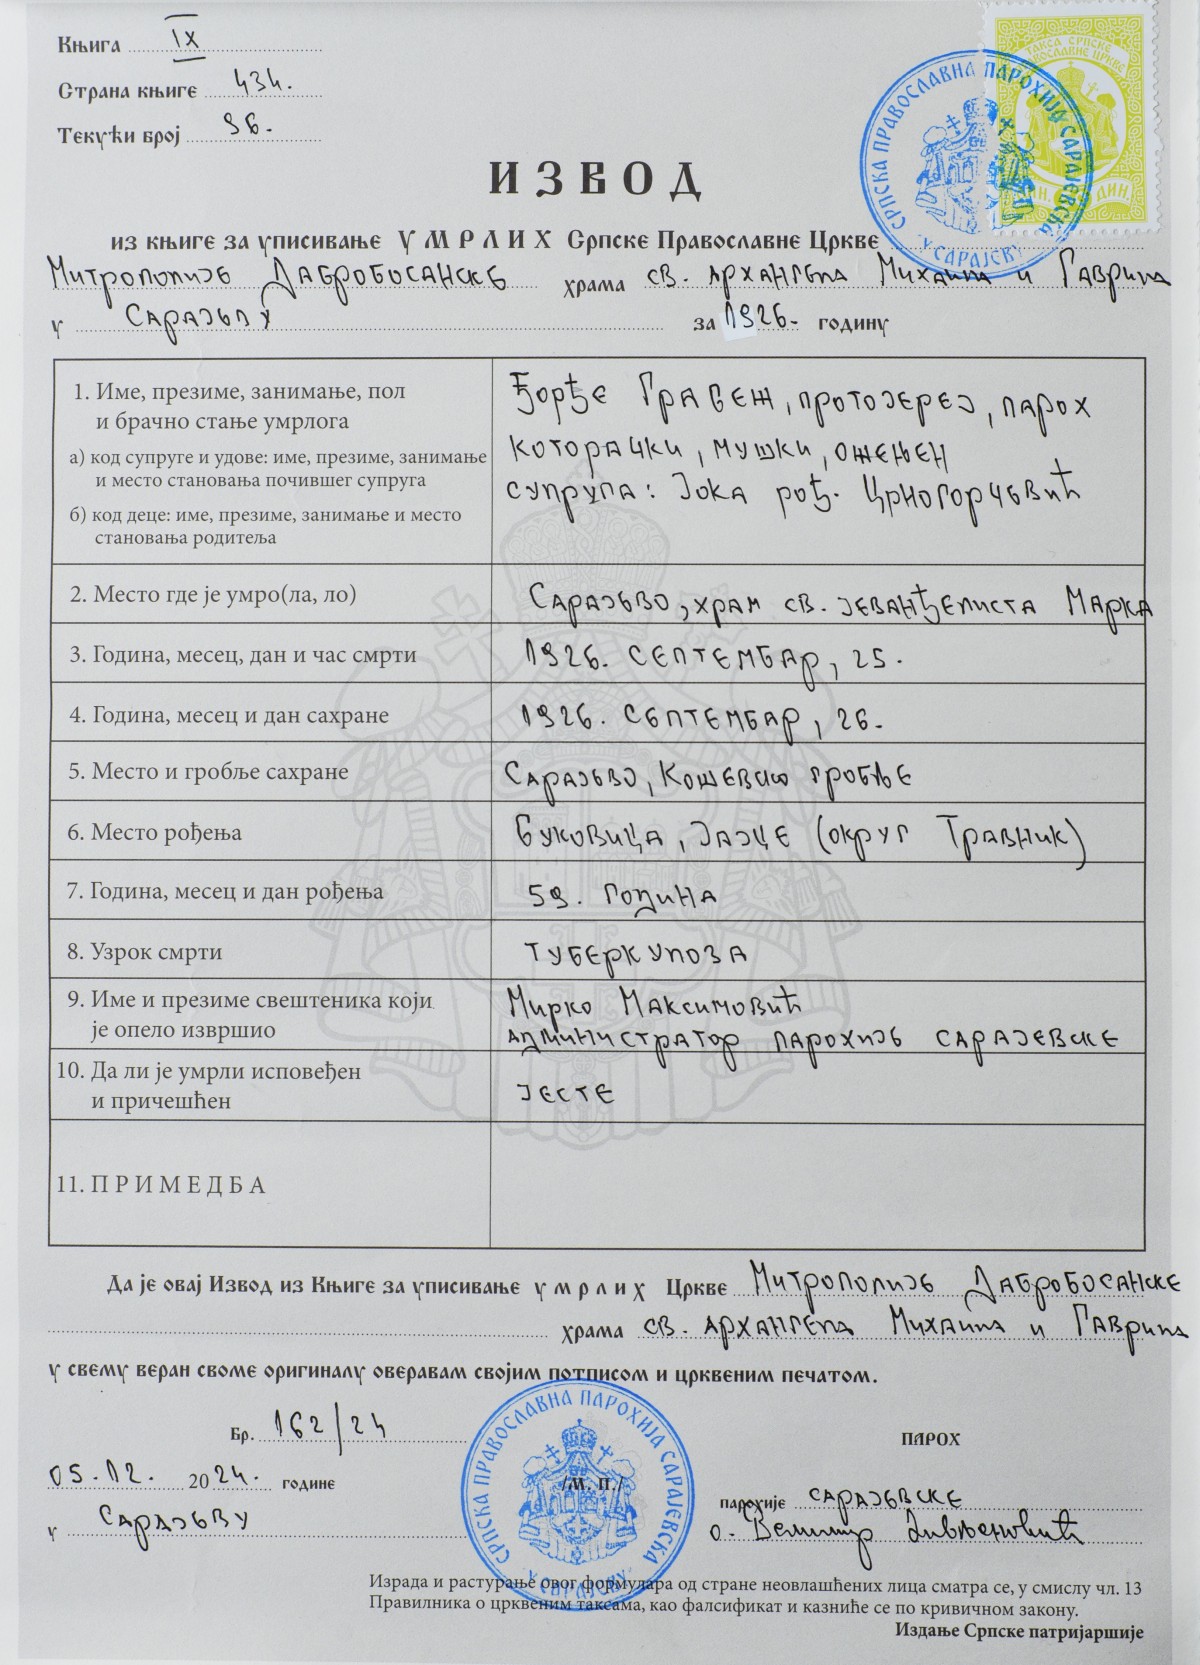 Књига IX
Страна књиге 434.
Текући број 96.
ТАКСА СРПСКЕ
ПРАВОСЛАВНЕ ЦРКВЕ
ДИН.
СРПСКА ПРАВОСЛАВНА ПАРОХИЈА САРАЈЕВСКА
У САРАЈЕВУ
ИЗВОД
из књиге за уписивање УМРЛИХ Српске Православне Цркве
Митрополије Дабробосанске храма св. Архангела Михаила и Гаврила
у Сарајеву за 1926. годину
1. Име, презиме, занимање, пол
и брачно стање умрлога
а) код супруге и удове: име, презиме, занимање
и место становања почившег супруга
б) код деце: име, презиме, занимање и место
становања родитеља
Ђорђе Грабеж, протојереј, парох
которачки, мушки, ожењен
супруга: Јока рођ. Црногорчевић
2. Место где је умро(ла, ло) Сарајево, храм св. јеванђелиста Марка
3. Година, месец, дан и час смрти 1926. септембар, 25.
4. Година, месец и дан сахране 1926. септембар, 26.
5. Место и гробље сахране Сарајево, Кошевско гробље
6. Место рођења Буковица, Јајце (округ Травник)
7. Година, месец и дан рођења 59. година
8. Узрок смрти туберкулоза
9. Име и презиме свештеника који
је опело извршио
Мирко Максимовић
администратор парохије сарајевске
10. Да ли је умрли исповеђен
и причешћен
јесте
11. ПРИМЕДБА
Да је овај Извод из Књиге за уписивање умрлих Цркве Митрополије Дабробосанске
храма св. Архангела Михаила и Гаврила
у свему веран своме оригиналу оверавам својим потписом и црквеним печатом.
Бр. 162/24
05.12. 2024. године
у Сарајеву
СРПСКА ПРАВОСЛАВНА ПАРОХИЈА САРАЈЕВСКА
У САРАЈЕВУ
/М. П./
ПАРОХ
парохије сарајевске
о. Велимир
Израда и растурање овог формулара од стране неовлашћених лица сматра се, у смислу чл. 13
Правилника о црквеним таксама, као фалсификат и казниће се по кривичном закону.
Издање Српске патријаршије